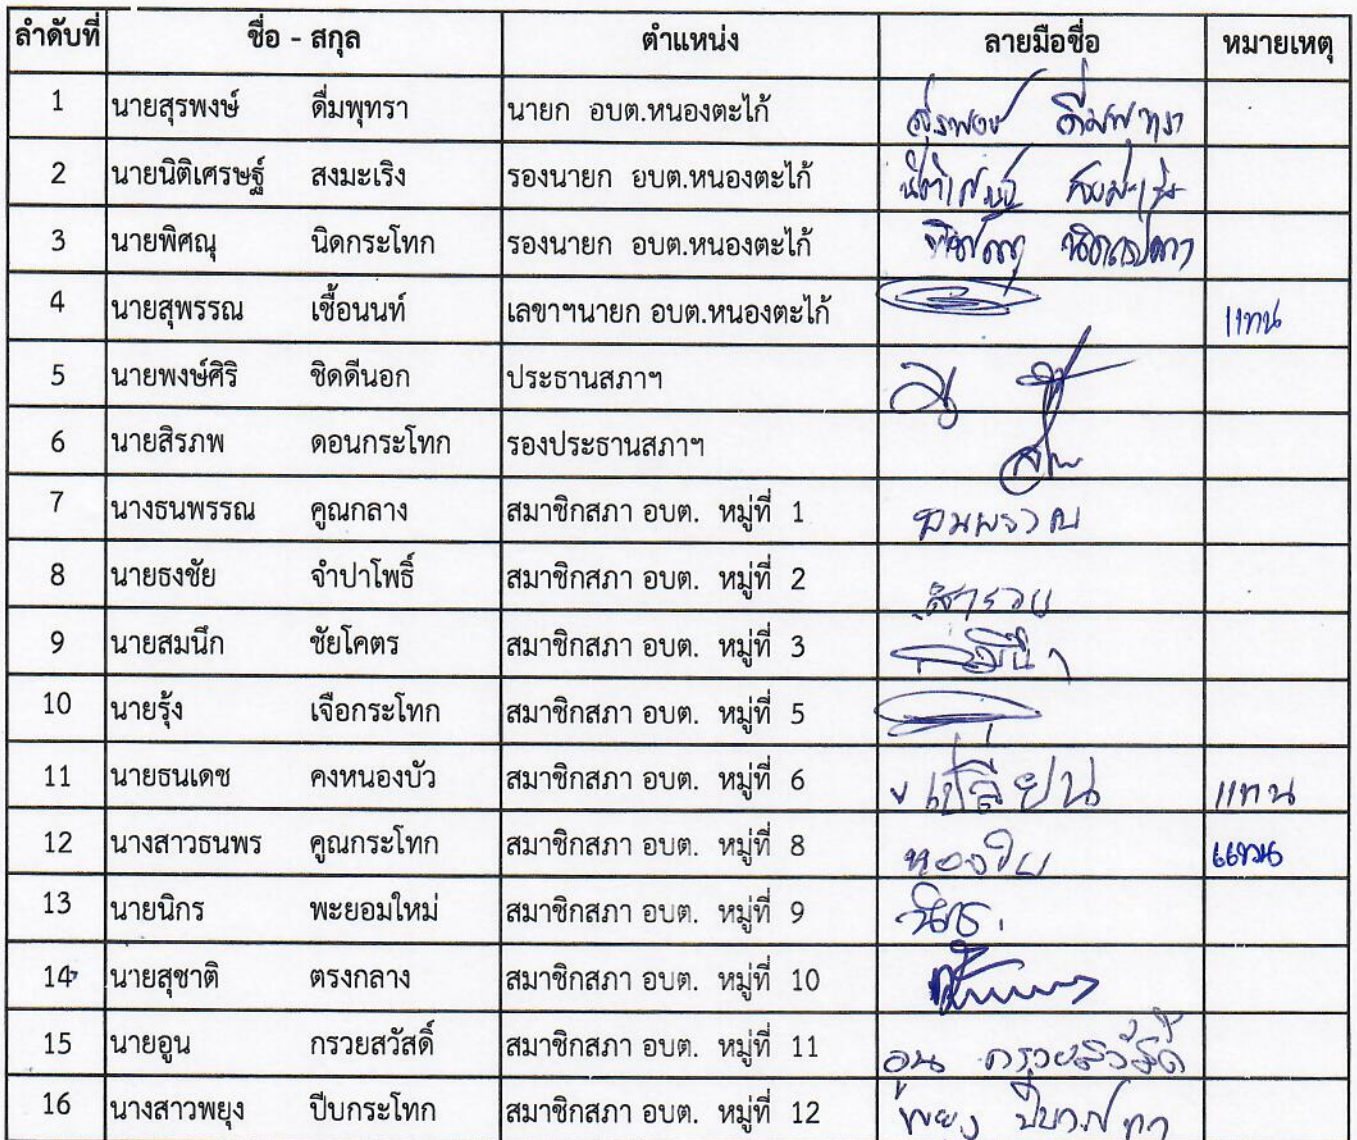 ลำดับที่ ชื่อ - สกุล ตำแหน่ง ลายมือชื่อ หมายเหตุ
1 นายสุรพงษ์ ดื่มพุทรา นายก อบต.หนองตะไก้ สุรพงษ์ ดื่มพุทรา
2 นายนิติเศรษฐ์ สงมะเริง รองนายก อบต.หนองตะไก้ นิติเศรษฐ์ สงมะเริง
3 นายพิศณุ นิดกระโทก รองนายก อบต.หนองตะไก้ พิศณุ นิดกระโทก
4 นายสุพรรณ เชื้อนนท์ เลขาฯนายก อบต.หนองตะไก้ แทน
5 นายพงษ์ศิริ ชิดดีนอก ประธานสภาฯ
6 นายสิรภพ ดอนกระโทก รองประธานสภาฯ
7 นางธนพรรณ คูณกลาง สมาชิกสภา อบต. หมู่ที่ 1 ธนพรรณ
8 นายธงชัย จำปาโพธิ์ สมาชิกสภา อบต. หมู่ที่ 2
9 นายสมนึก ชัยโคตร สมาชิกสภา อบต. หมู่ที่ 3
10 นายรุ้ง เจือกระโทก สมาชิกสภา อบต. หมู่ที่ 5
11 นายธนเดช คงหนองบัว สมาชิกสภา อบต. หมู่ที่ 6 เปลี่ยน แทน
12 นางสาวธนพร คูณกระโทก สมาชิกสภา อบต. หมู่ที่ 8 แทน
13 นายนิกร พะยอมใหม่ สมาชิกสภา อบต. หมู่ที่ 9
14 นายสุชาติ ตรงกลาง สมาชิกสภา อบต. หมู่ที่ 10
15 นายอูน กรวยสวัสดิ์ สมาชิกสภา อบต. หมู่ที่ 11 อูน กรวยสวัสดิ์
16 นางสาวพยุง ปีบกระโทก สมาชิกสภา อบต. หมู่ที่ 12 พยุง ปีบกระโทก